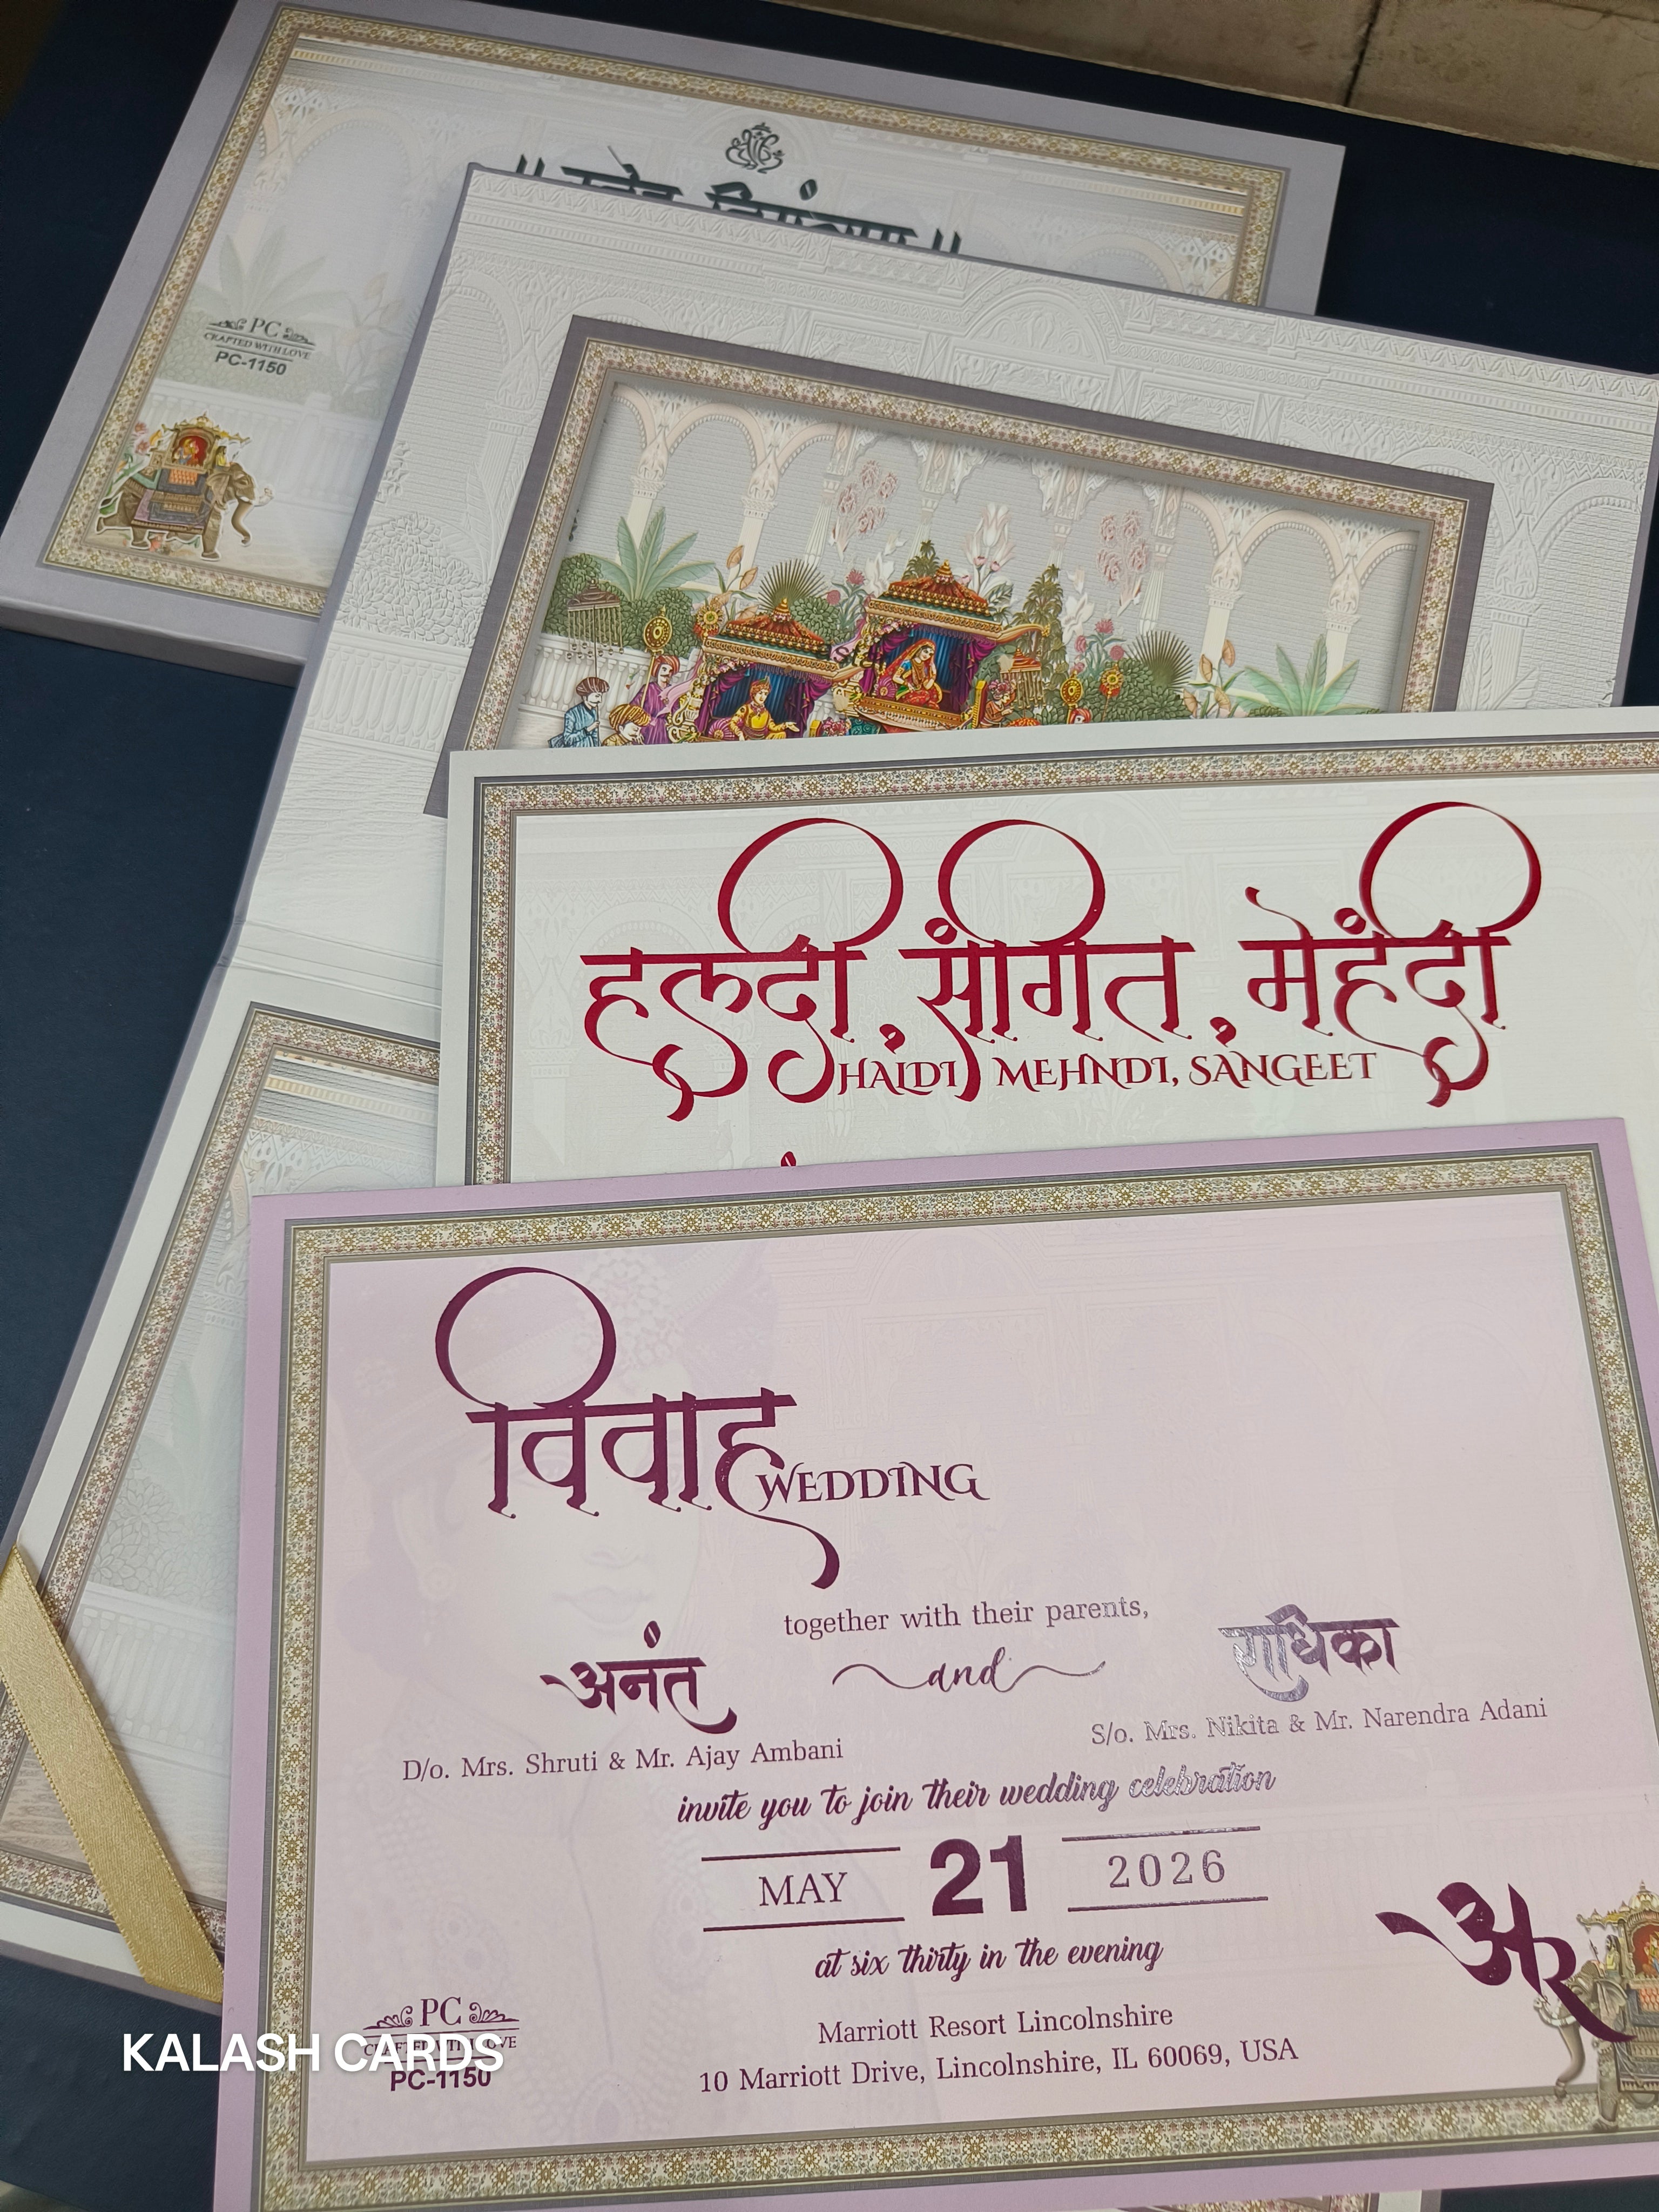 ॥ स्नेह निमंत्रण ॥
PC
CRAFTED WITH LOVE
PC-1150
हल्दी, संगित, मेहंदी
HALDI MEHNDI, SANGEET
विवाह
WEDDING
together with their parents,
अनंत and राधिका
D/o. Mrs. Shruti & Mr. Ajay Ambani
S/o. Mrs. Nikita & Mr. Narendra Adani
invite you to join their wedding celebration
MAY 21 2026
at six thirty in the evening
Marriott Resort Lincolnshire
10 Marriott Drive, Lincolnshire, IL 60069, USA
अR
PC
CRAFTED WITH LOVE
PC-1150
KALASH CARDS